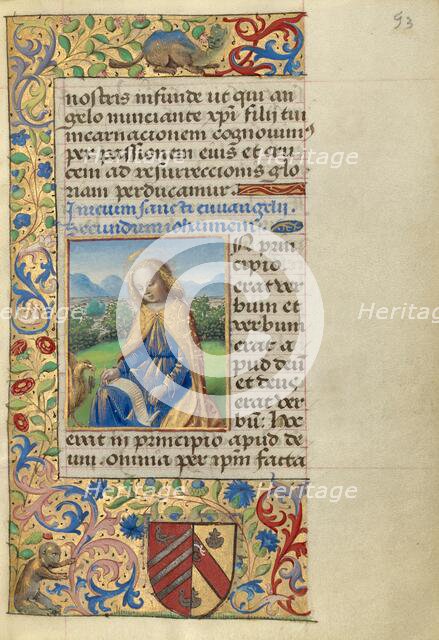 93
nostris infunde ut qui an
gelo nunciante xpi filii tui
incarnacionem cognouim
per passionem eius et cru
cem ad resurreccionis glo
riam perducamur.
Inicium sancti euuangelii.
Secundum iohannem
N prin
cipio
erat ver
bum et
verbum
erat a
pud deu
et deus
erat ver
bu: Hoc
erat in principio apud de
um. Omnia per ipm facta
Heritage
Heritage
Heritage
Heritage
Heritage
Heritage